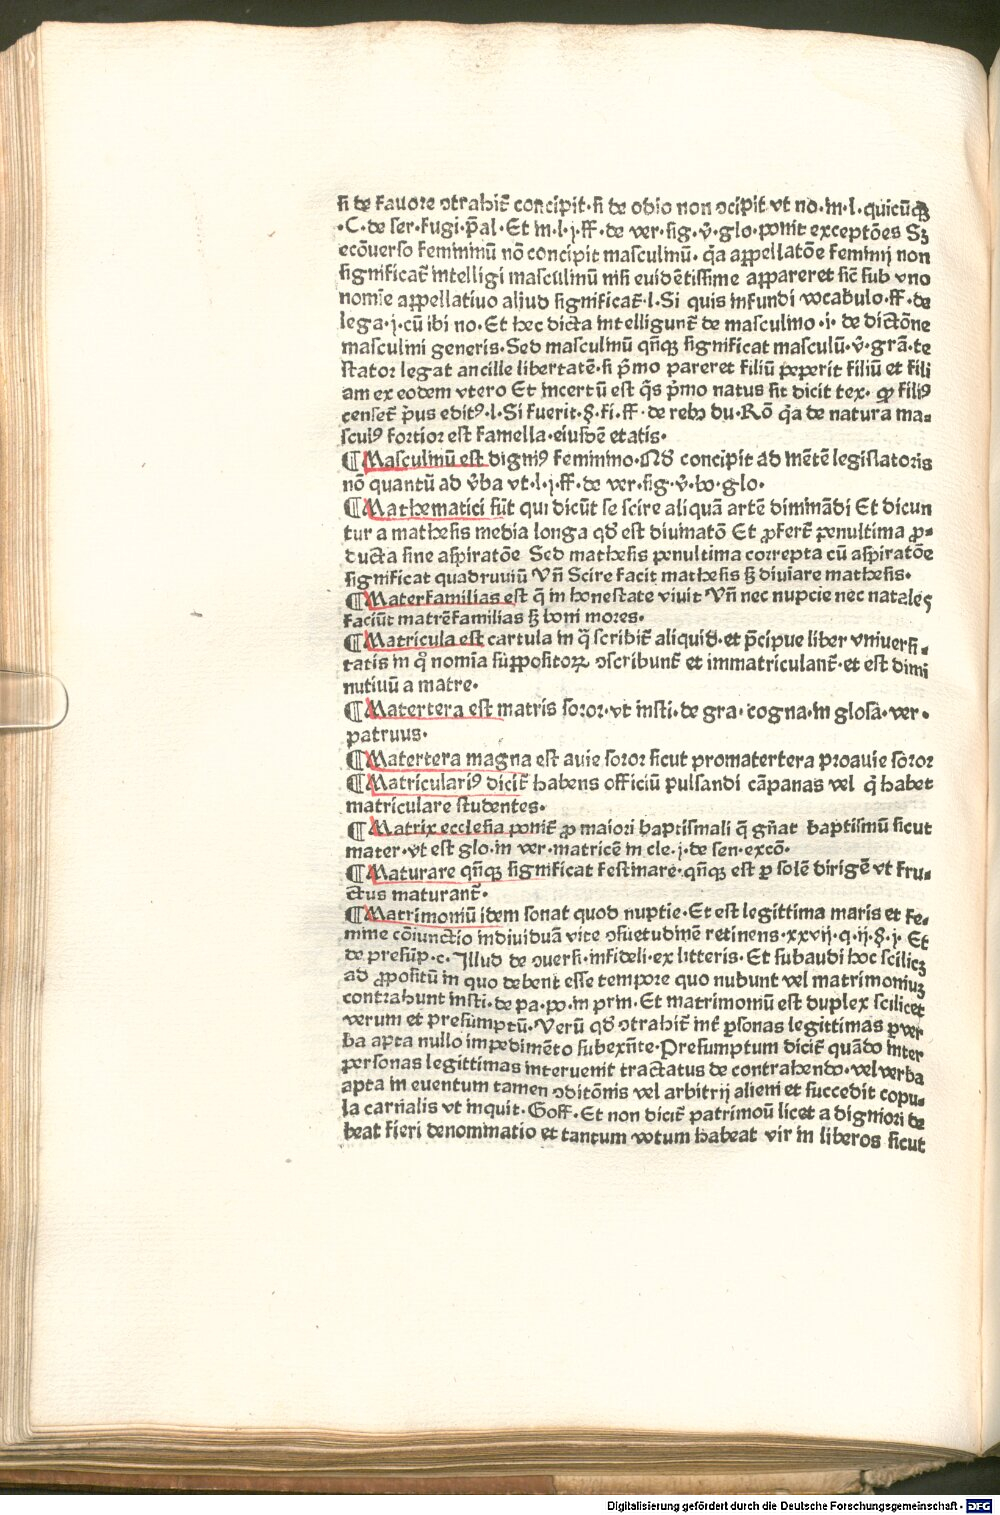 si de fauore ↄtrahit᷑ concipit·si de odio non ↄcipit vt no·in·l·quicūqꝫ
·C·de ser·fugi·p̄al·Et in·l·j·ff·de ver·sig·v̄·glo·ponit exceptões Sꝫ
ecōuerso femininū nō concipit masculinū·q̄a appellatōe feminij non
significat᷑ intelligi masculinū nisi euidētissime appareret sic̄ sub vno
nomīe appellatiuo aliud significat᷑·l·Si quis infundi vocabulo·ff·de
lega·j·cū ibi no·Et hec dicta intelligunt᷑ de masculino·i·de dictōne
masculini generis·Sed masculinū qn̄qꝫ significat masculū·v̄·grā·te
stator legat ancille libertatē·si p̄mo pareret filiū peperit filiū et fili
am ex eodem vtero Et incertū est q̄s p̄mo natus sit dicit tex·ꝙ filiꝰ
censet᷑ p̄us editꝰ·l·Si fuerit·§·fi·ff·de rebꝫ du·Rō q̄a de natura ma⸗
sculꝰ fortior est famella·eiusdē etatis·
¶Masculinū est digniꝰ feminino·Nō concipit ad mētē legislatoris
nō quantū ad v̄ba vt·l·j·ff·de ver·sig·v̄·bo·glo·
¶Mathematici sūt qui dicūt se scire aliquā artē diuināndi Et dicun
tur a mathesis media longa qd̄ est diuinatō Et ꝓfert᷑ penultima ꝓ⸗
ducta sine aspiratōe Sed mathesis penultima correpta cū aspiratōe
significat quadruuiū Vn̄ Scire facit mathesis sꝫ diuīare mathesis·
¶Materfamilias est q̄ in honestate viuit Vn̄ nec nupcie nec natales
faciūt matrēfamilias sꝫ boni mores·
¶Matricula est cartula in q̄ scribit᷑ aliquid·et p̄cipue liber vniuersi⸗
tatis in q̊ nomīa suppositoꝝ ↄscribunt᷑ et immatriculant᷑·et est dimi
nutiuū a matre·
¶Matertera est matris soror·vt insti·de gra·cogna·in glosa·ver·
patruus·
¶Matertera magna est auie soror sicut promatertera proauie soror
¶Matriculariꝰ dicit᷑ habens officiū pulsandi cāpanas vel q̄ habet
matriculare studentes·
¶Matrix ecclesia ponit᷑ ꝓ maiori baptismali q̄ gn̄at baptismū sicut
mater·vt est glo·in ver·matricē in cle·j·de sen·excō·
¶Maturare qn̄qꝫ significat festinare·qn̄qꝫ est ꝑ solē dirigē vt fru⸗
ctus maturant᷑·
¶Matrimoniū idem sonat quod nuptie·Et est legittima maris et fe⸗
mine cōiunctio indiuiduā vite ↄsuetudinē retinens·xxvij·q·ij·§·j· Et
de presūp·c·Illud de ↄuersi·infideli·ex litteris·Et subaudi hoc scilicꝫ
ad ꝓpositū in quo debent esse tempore quo nubunt vel matrimoniuꝫ
contrahunt insti·de pa·po·in prin·Et matrimoniū est duplex scilicet
verum et presumptū·Verū qd̄ ↄtrahit᷑ int᷑ ꝑsonas legittimas ꝑ ver
ba apta nullo impedimēto subexn̄te·Presumptum dicit᷑ quādo inter
personas legittimas interuenit tractatus de contrahendo·vel verba
apta in euentum tamen ↄditōnis vel arbitrij alieni et succedit copu⸗
la carnalis vt inquit·Goff·Et non dicit᷑ patrimoū licet a digniori de
beat fieri denominatio et tantum votum habeat vir in liberos sicut
Digitalisierung gefördert durch die Deutsche Forschungsgemeinschaft · DFG